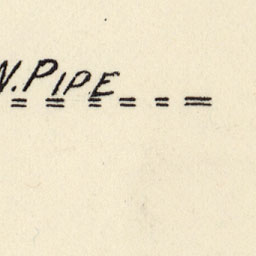 W. PIPE